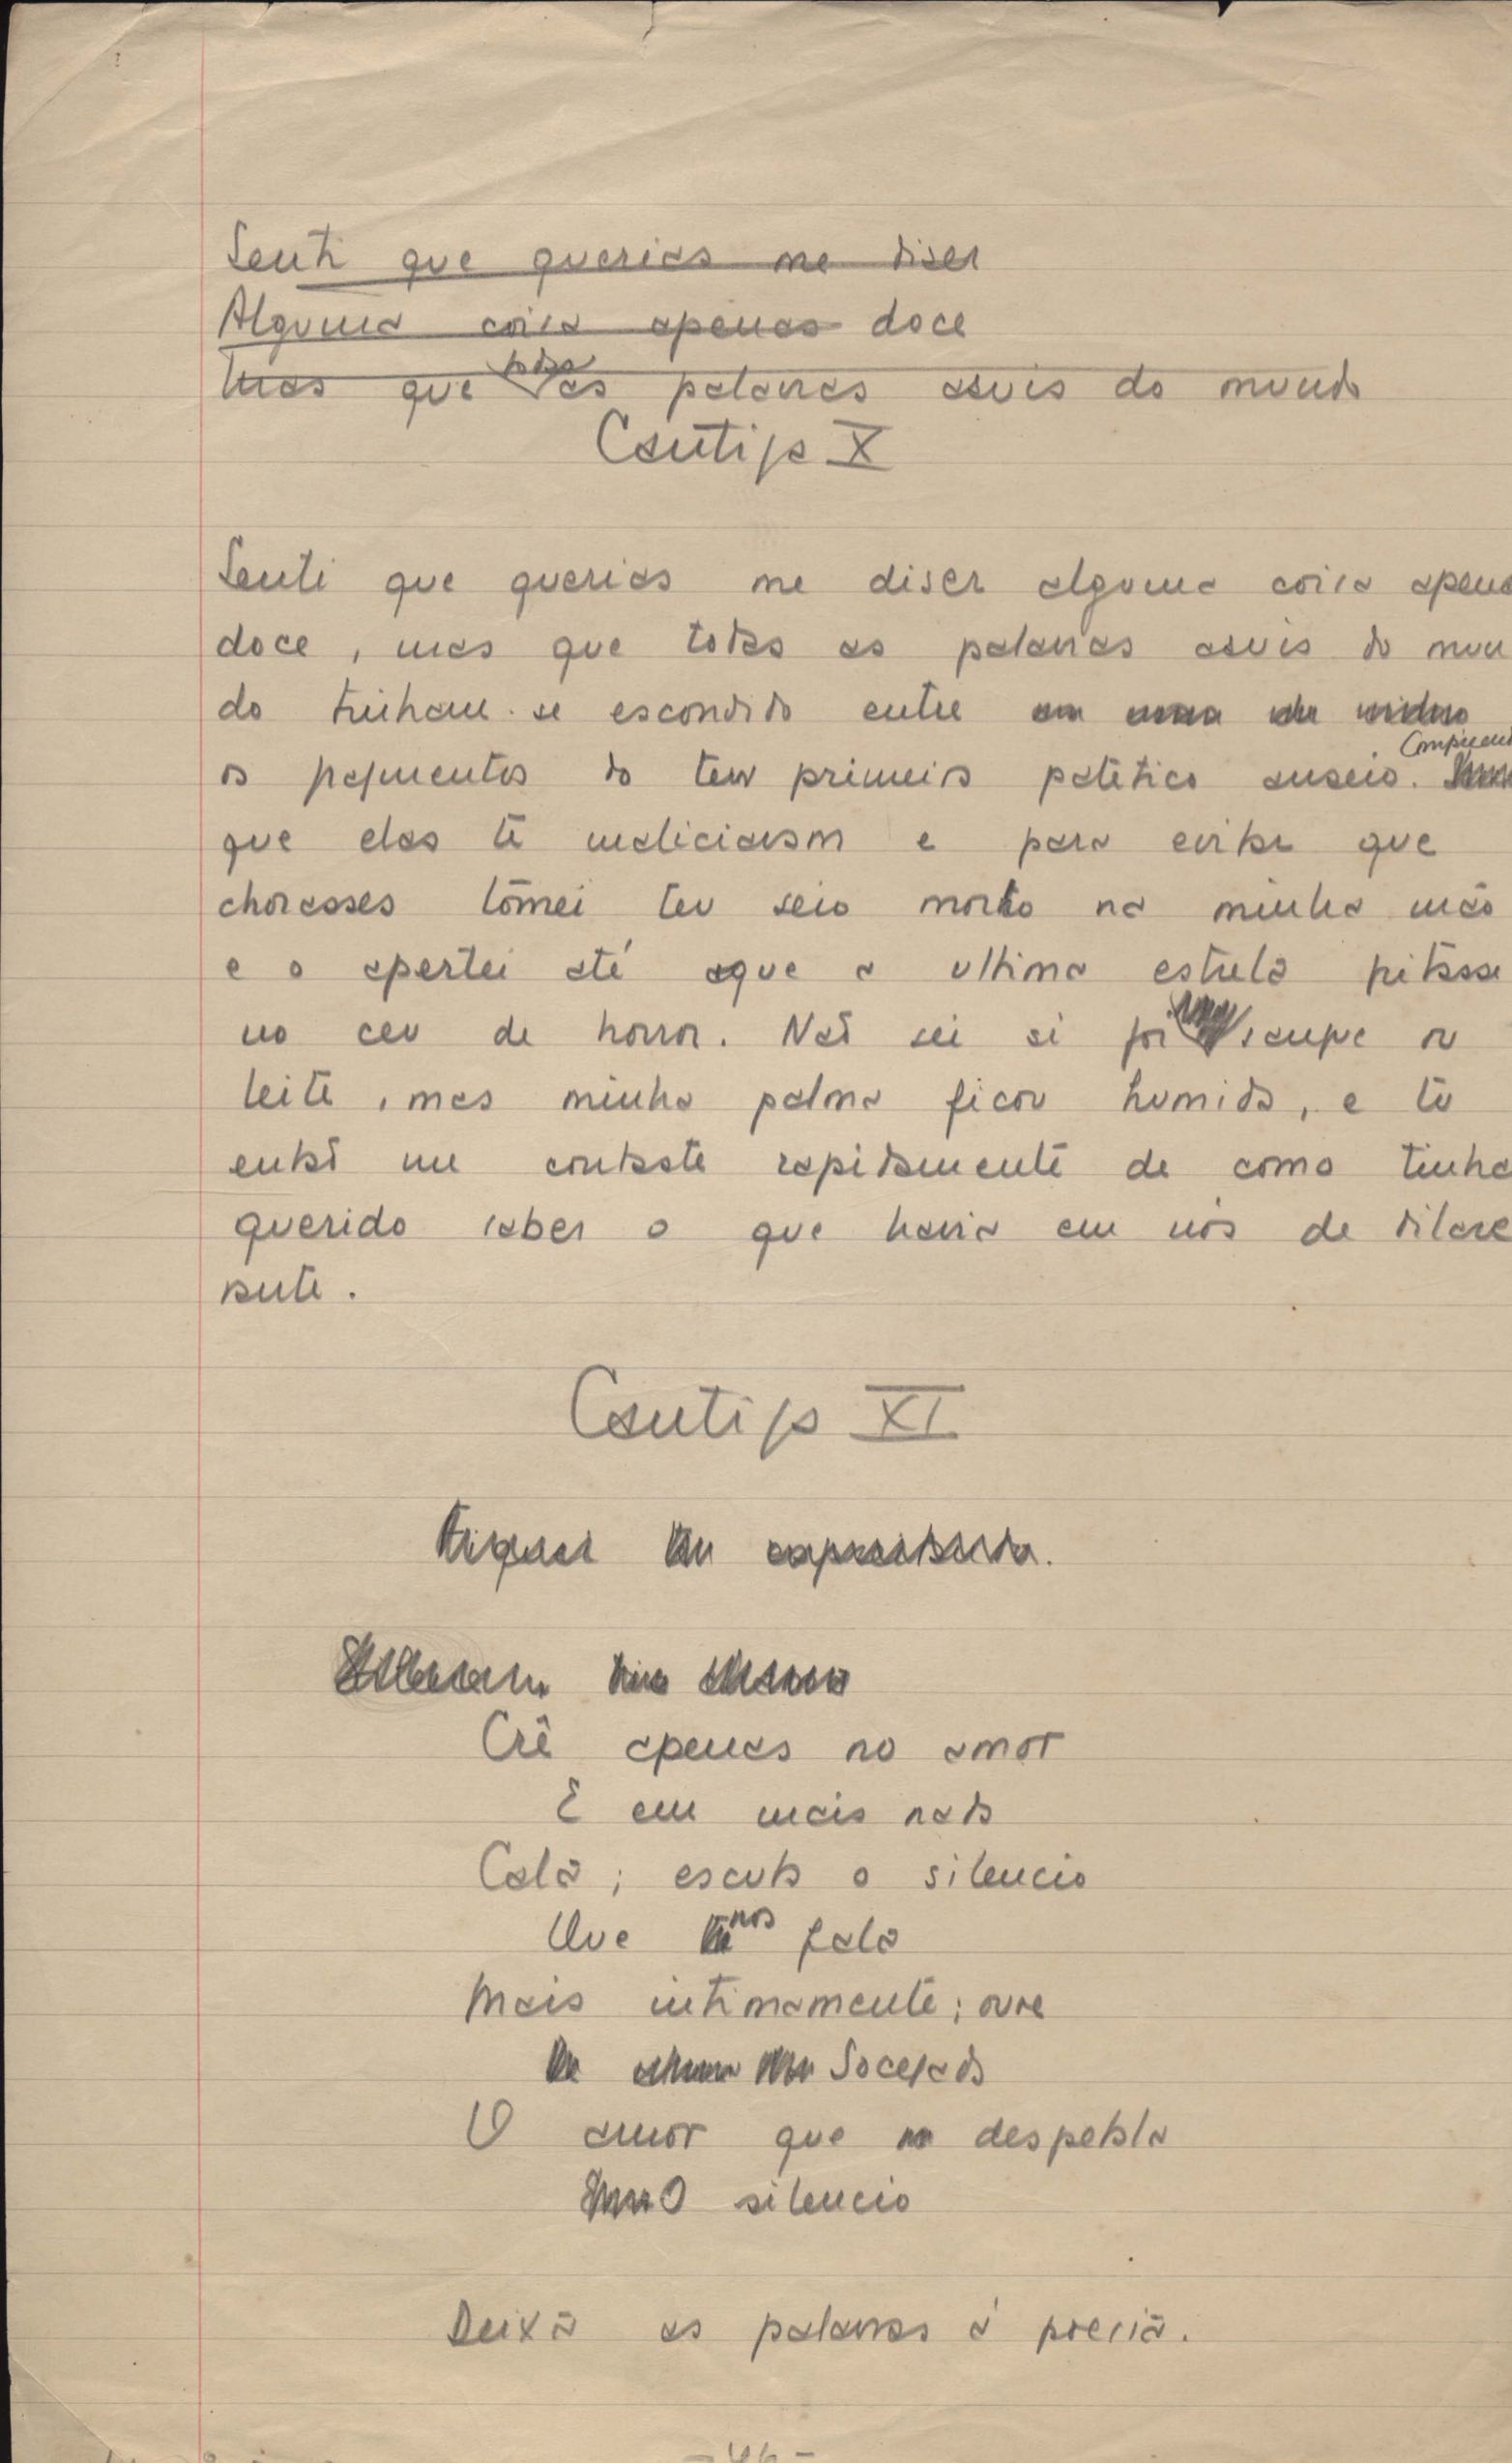 Senti que querias me diser
Alguma coisa apenas doce
Mas que todas as palavras asuis do mundo
Cantiga X
Senti que querias me diser alguma coisa apena
doce, mas que todas as palavras asuis do mun
do tinham-se escondido entre
Compreend
os fragmentos do teu primeiro patético anseio.
que elas te maliciavam e para evitar que
chorasses tômei teu seio morto na minha mão
e o apertei até que a ultima estrela fitasse
no ceu de horror. Naõ sei si foi sangue ou
leite, mas minha palma ficou humida, e tu
entaõ me contaste rapidamente de como tinha
querido saber o que havia em nós de dilace
rante.
Cantiga XI
Crê apenas no amor
E em mais nada
Cala; escuta o silencio
Que nos fala
Mais intimamente; ouve
Socegada
O amor que despetala
O silencio
Deixa as palavras á poesia.
- 46 -